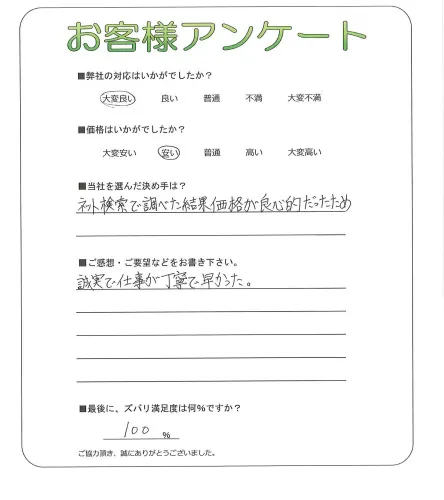 お客様アンケート
■弊社の対応はいかがでしたか?
大変良い 良い 普通 不満 大変不満
■価格はいかがでしたか?
大変安い 安い 普通 高い 大変高い
■当社を選んだ決め手は?
ネット検索で調べた結果価格が良心的だったため
■ご感想・ご要望などをお書き下さい。
誠実で仕事が丁寧で早かった。
■最後に、ズバリ満足度は何%ですか?
100 %
ご協力頂き、誠にありがとうございました。